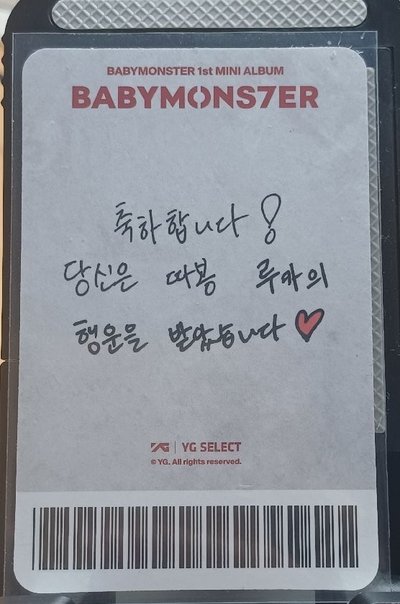 BABYMONSTER 1st MINI ALBUM
BABYMONS7ER
축하합니다!
당신은 따봉 루카의
행운을 받았습니다♥
YG | YG SELECT
© YG. All rights reserved.